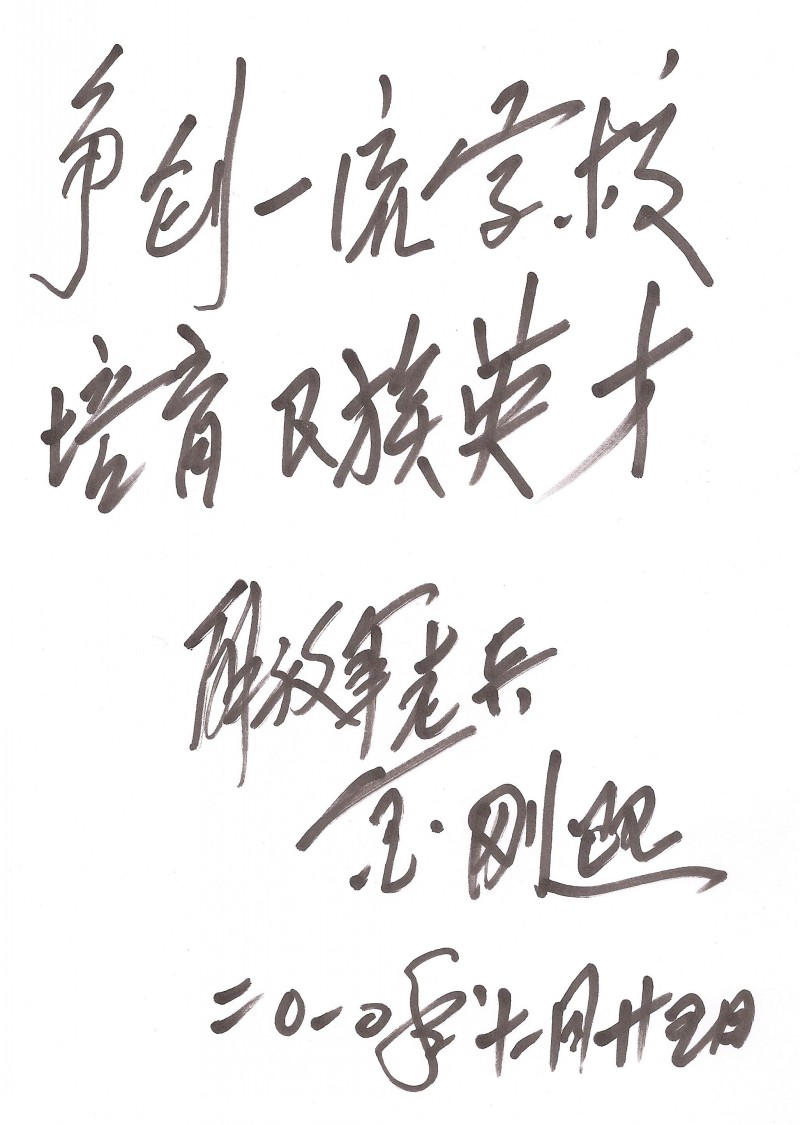 争创一流学校
培育民族英才
解放军老兵
金刚
二〇一〇年十二月廿五日